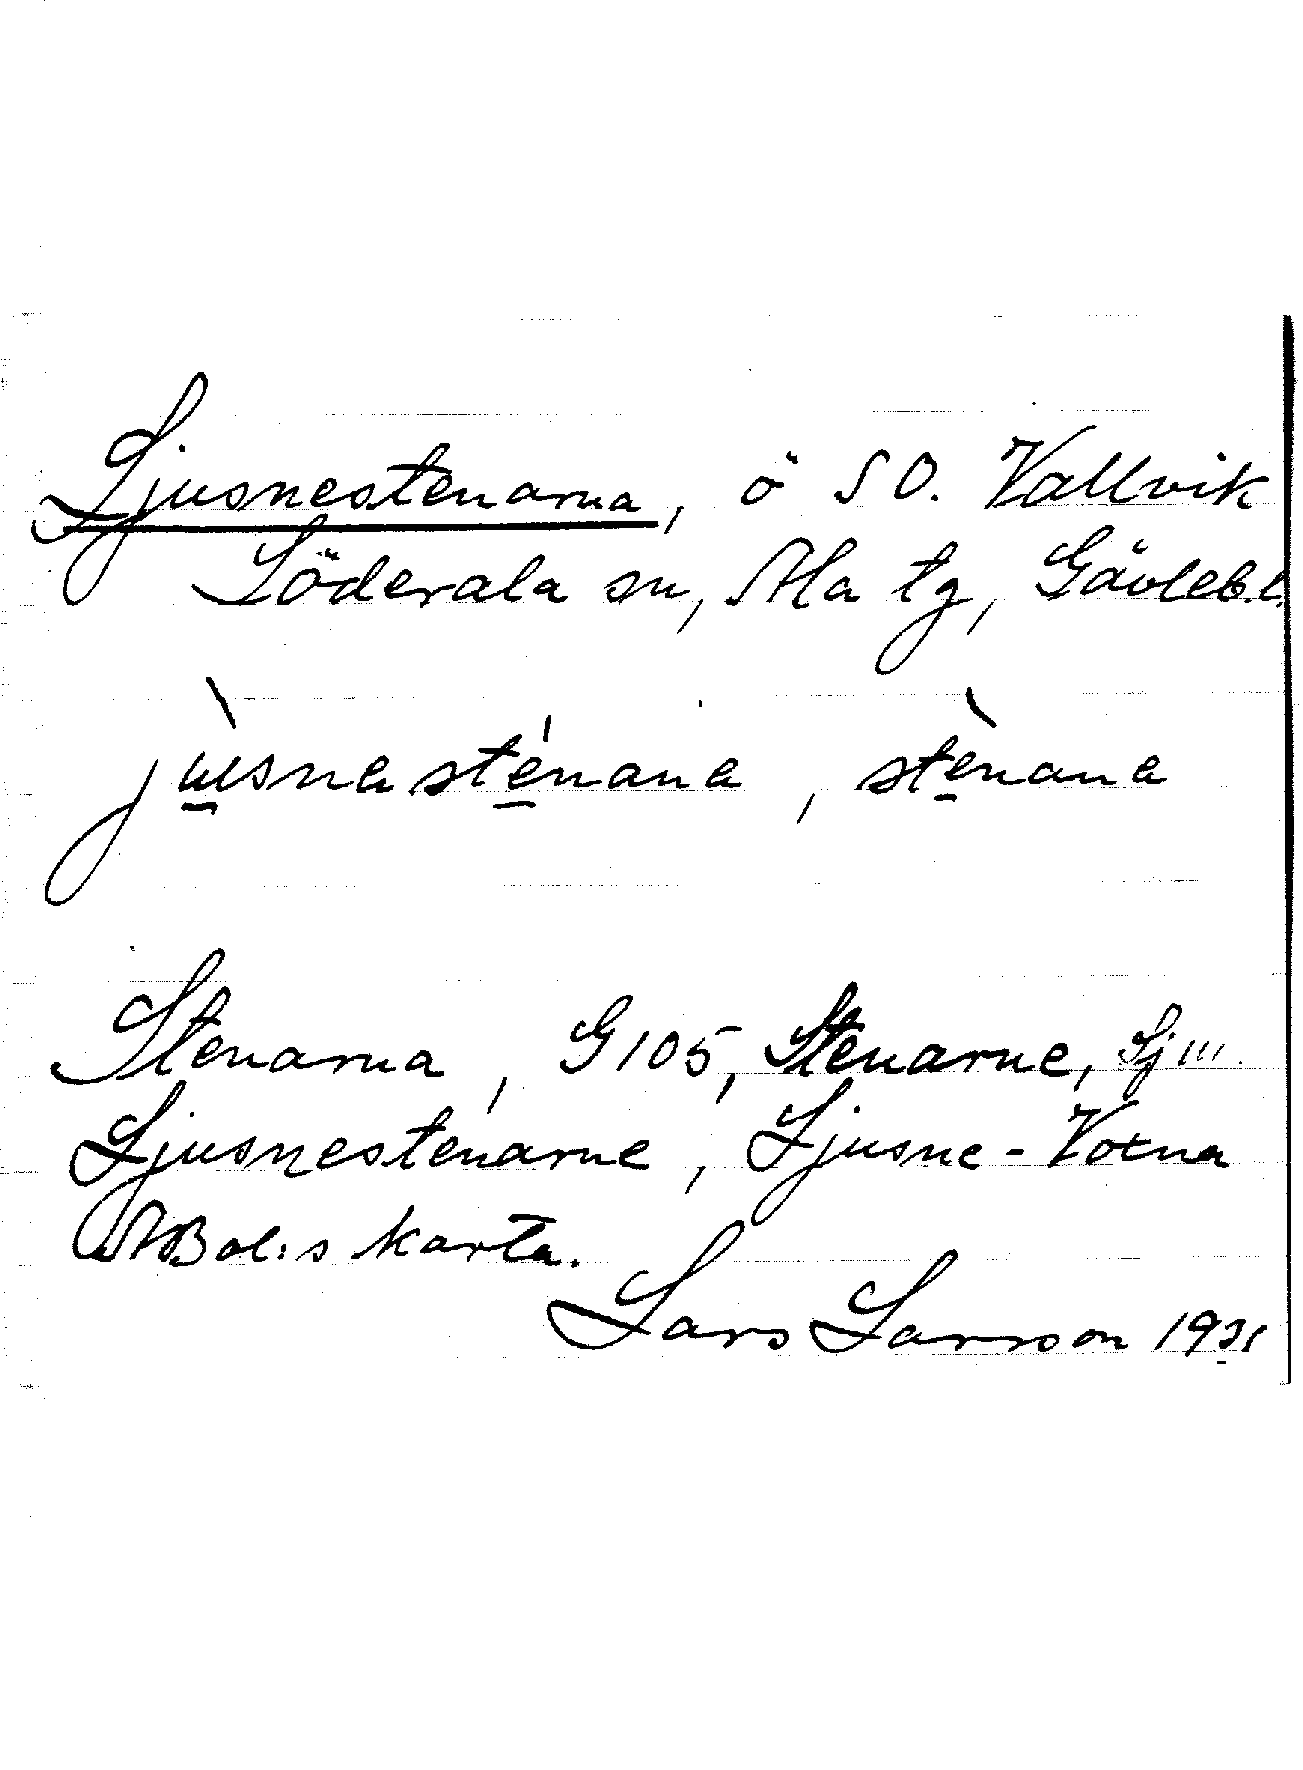 Ljusnestenarna, ö SO. Vallvik
Söderala sn, Ala tg, Gävleb.l.
jùsnasténana, stènana
Stenarna, G105, Stenarne, Sj 111.
Ljusnestenarne, Ljusne-Voxna
ABol:s karta.
Lars Larsson 1931